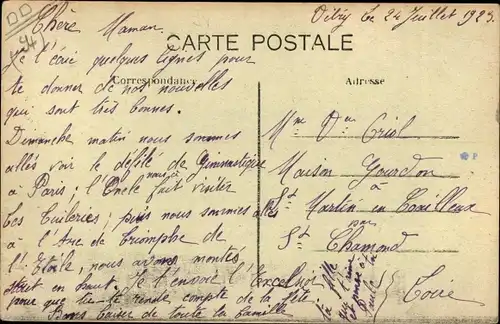 Vitry le 24 Juillet 1923.
Chère Maman
CARTE POSTALE
Correspondance
Adresse
Je t'écris quelques lignes pour
te donner de nos nouvelles
qui sont très bonnes.
Dimanche matin nous sommes
allés voir le défilé de Gymnastique
à Paris; l'Oncle nous a fait visiter
les Tuileries; puis nous sommes allés
à l'Arc de Triomphe de
l'Etoile, nous avons montés
tout en haut. Je t'envoie l'Excelsior
pour que tu te rende compte de la fête.
Bons baiser de toute la famille
Mme Vve Criol
Maison Jourdon
à
St Martin en Coailleux
par
St Chamond
Loire